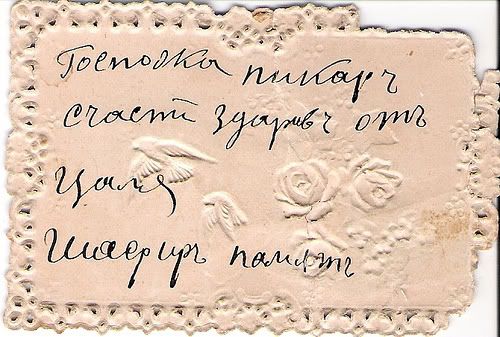 Госпожа пикаръ
счастi здаравъ отъ
Цаля
Шаериръ памятъ